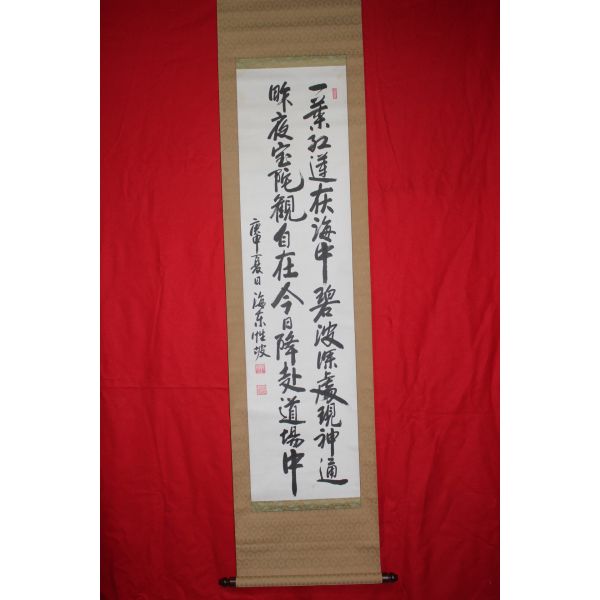 一葉紅蓮在海中碧波深處現神通
昨夜宝陀觀自在今日降赴道場中
庚申夏日 海东性坡